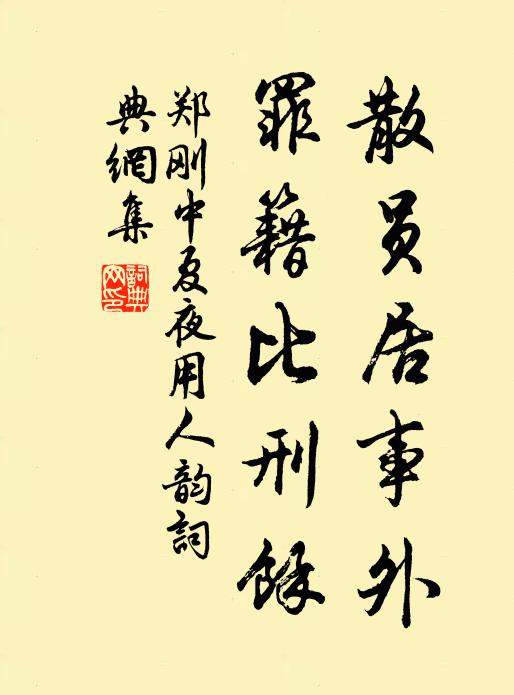 散员居事外
罪籍比刑馀
郑刚中夏夜用人韵詞
典網集
詞典网印